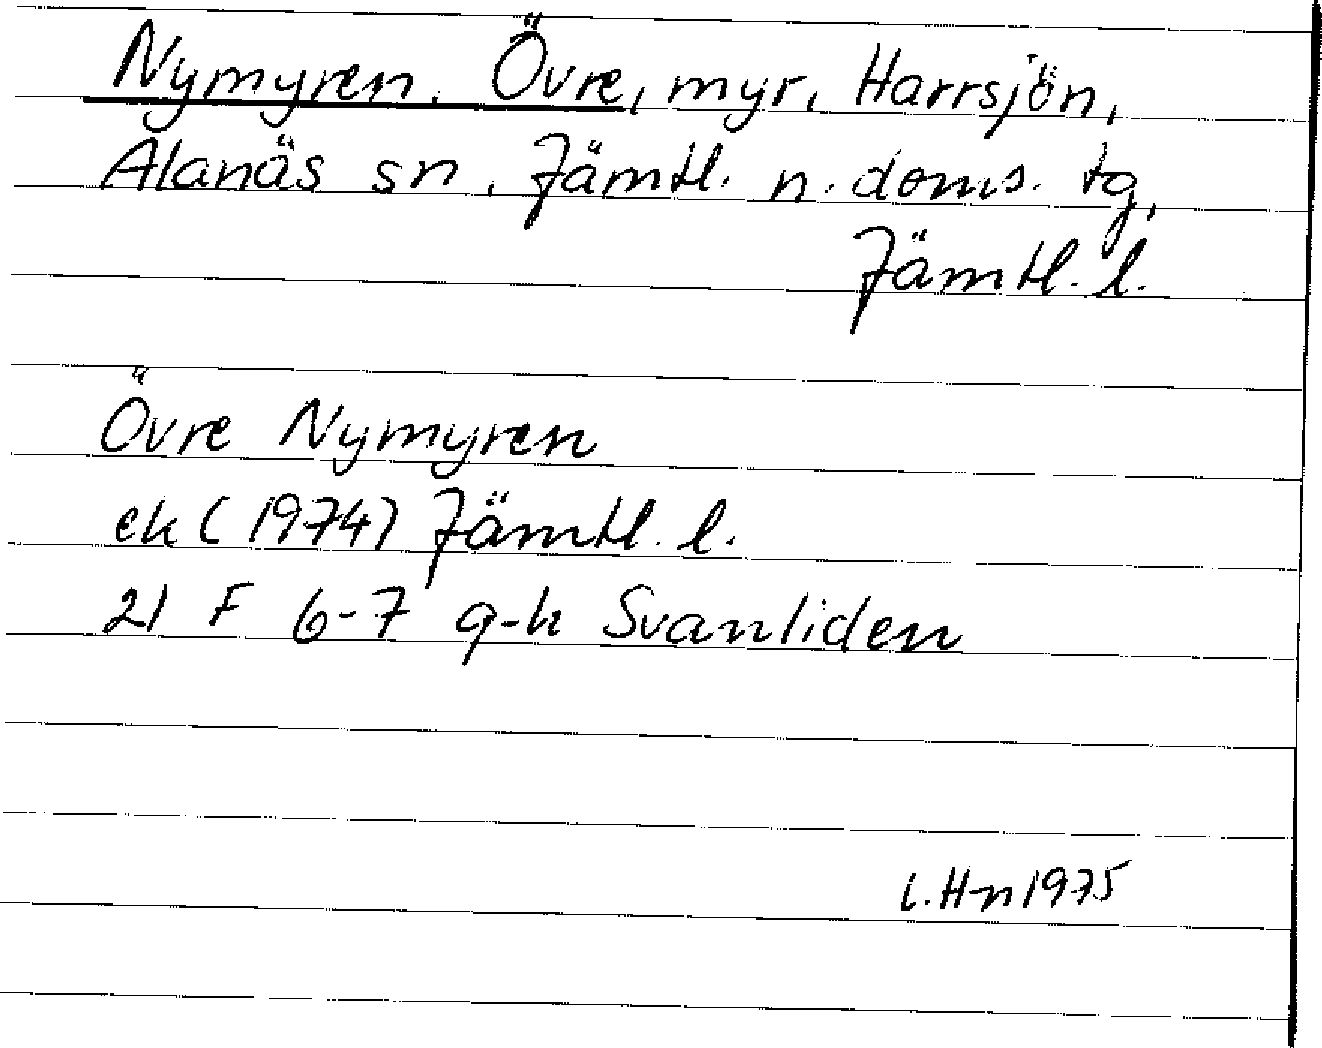 Nymyren, Övre, myr, Harrsjön,
Alanäs sn, Jämtl. n. doms. tg,
Jämtl. l.
Övre Nymyren
ek (1974) Jämtl. l.
21 F 6-7 g-h Svanliden
L.Hn 1975